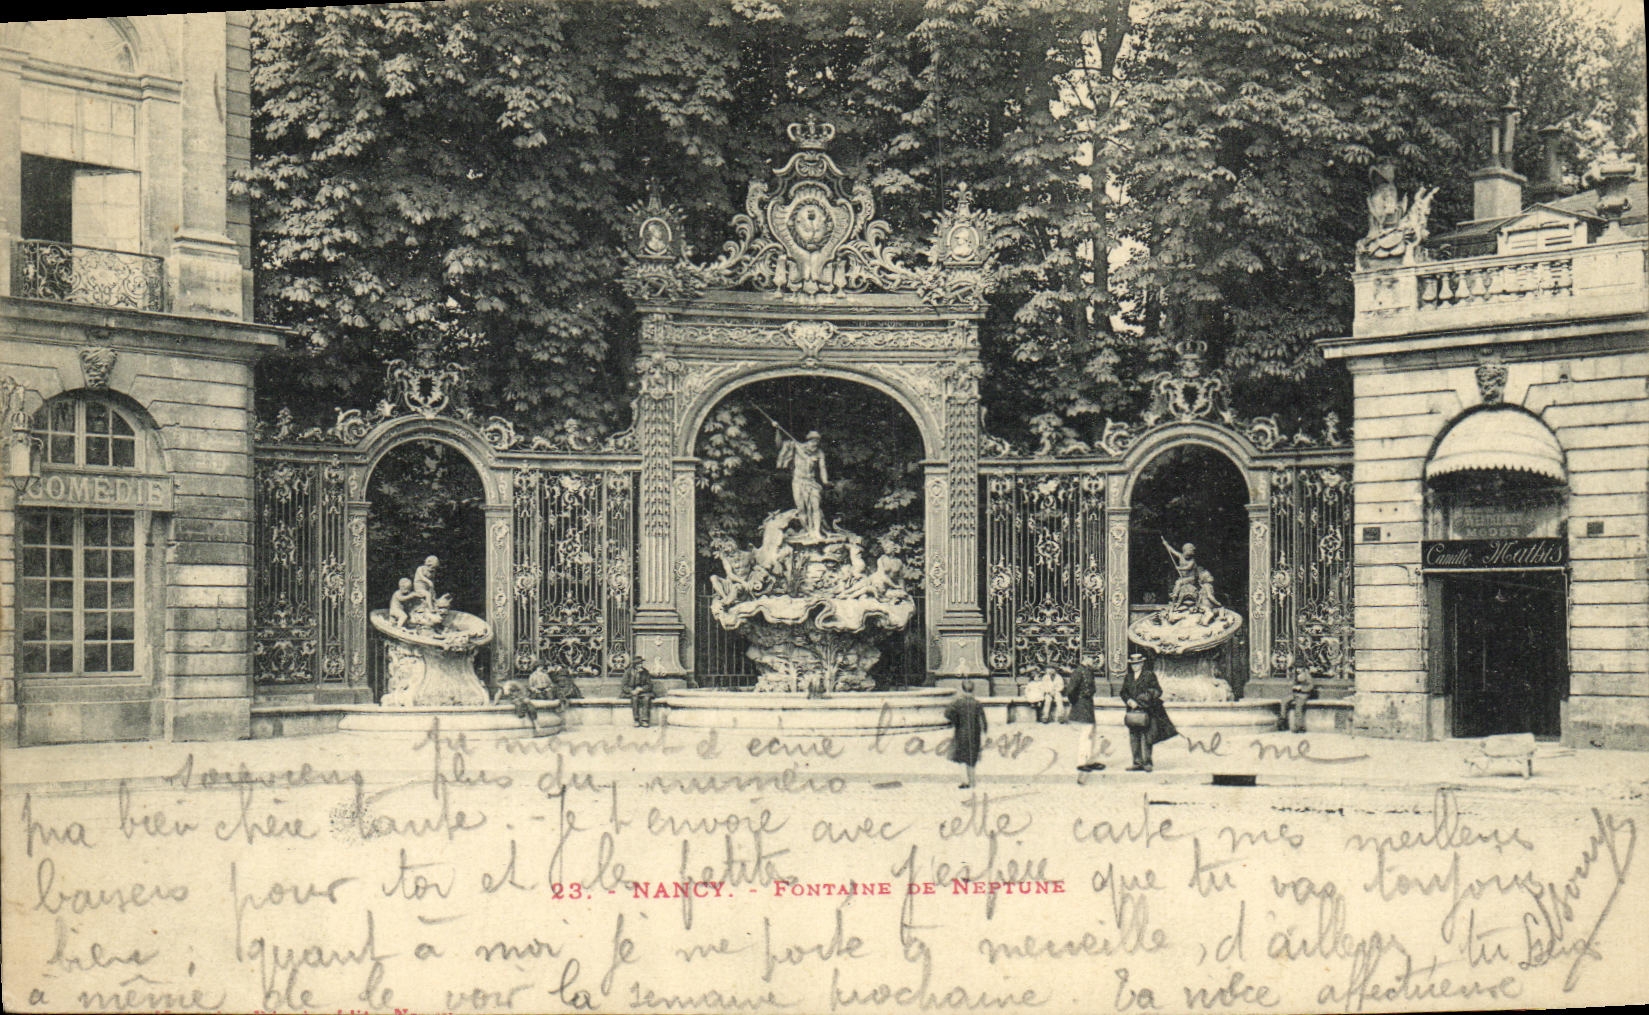 COMÉDIE
MODES
Camille Mathis
Au moment d'écrire l'adresse, je ne me
souviens plus du numéro -
Ma bien chère tante. - Je t'envoie avec cette carte mes meilleurs
baisers pour toi et les petites, j'espère que tu vas toujours
23. - NANCY. - FONTAINE DE NEPTUNE
bien ; quant à moi je me porte à merveille, d'ailleurs, tu seras
à même de le voir la semaine prochaine. Ta nièce affectueuse